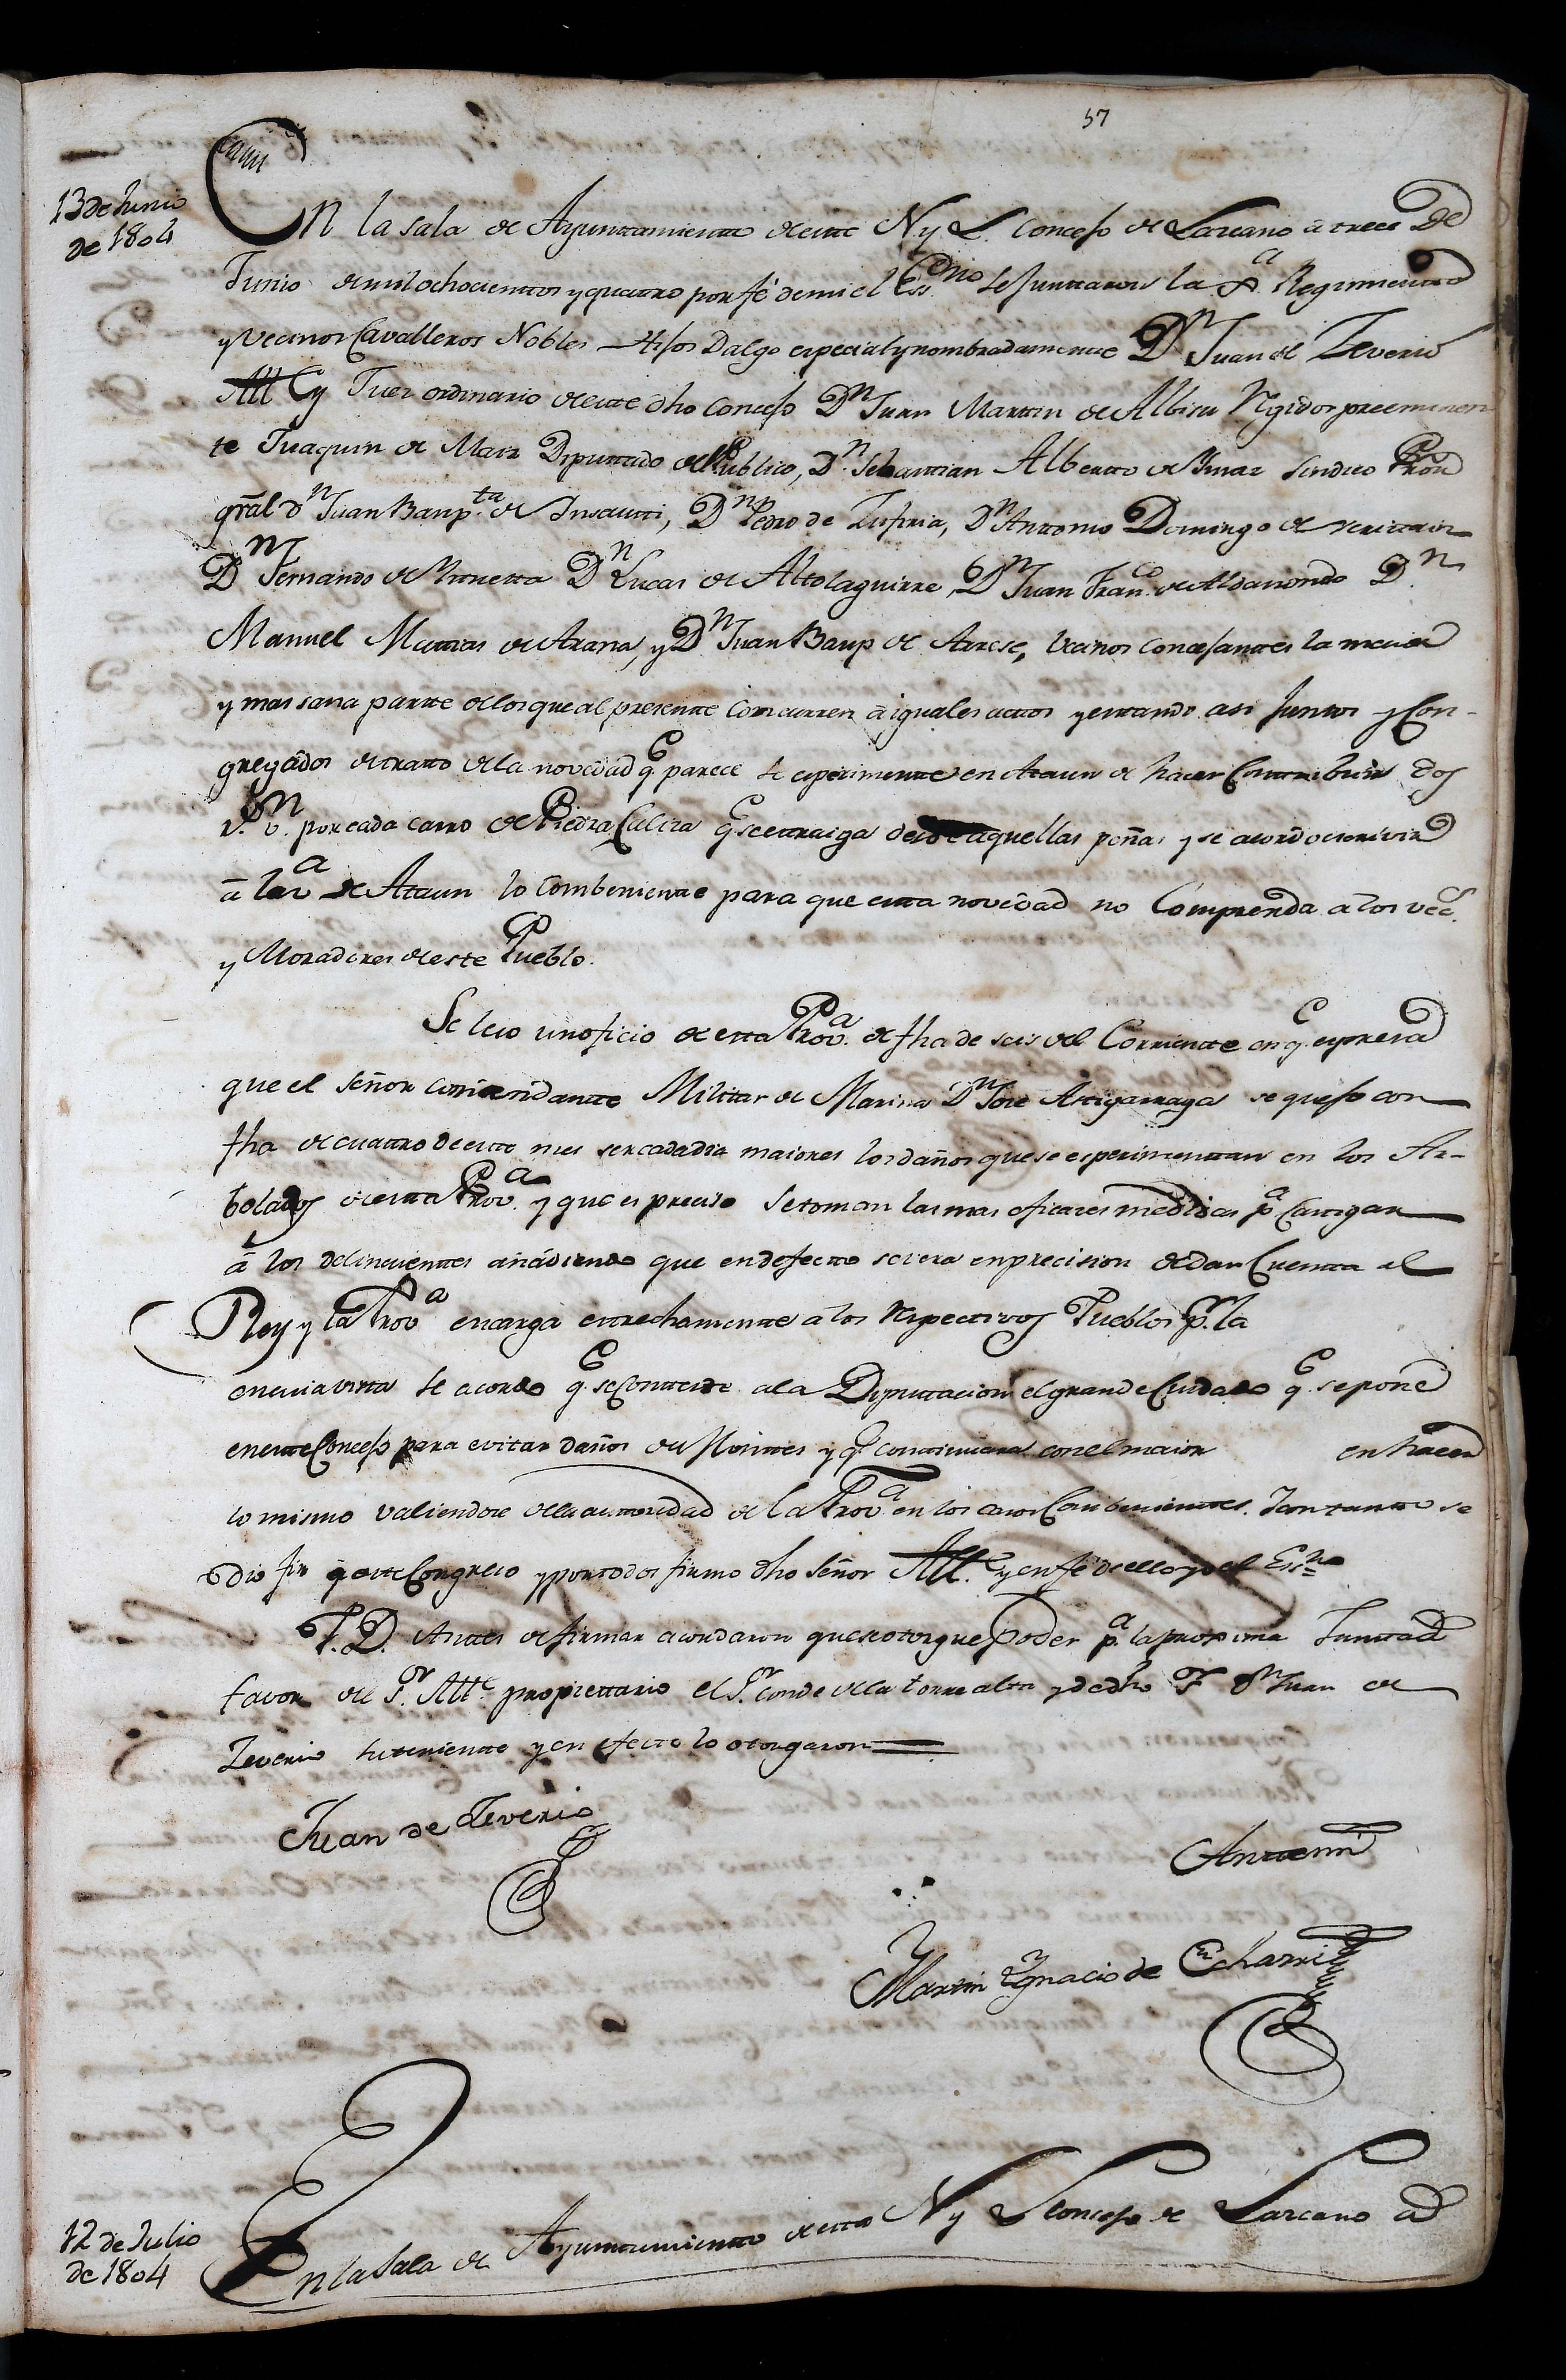 57
13 de Junio
de 1804
En la sala de Ayuntamiento de este N. y L. Concejo de Lazcano à trece De
Junio de mil ochocientos y quatro por fé de mi el Essno se Juntaron la Ja Regimiento
y Vecinos Cavalleros Nobles Hijos Dalgo especial y nombradamente Dn Juan de Zeverio
Alle y Juez ordinario de este dho Concejo Dn Juan Martin de Albisu Regidor preeminen
te Juaquin de Maiz Diputado del Publico, Dn Sebastian Alberto de Ymaz Sindico Pror
gral Dn Juan Baupta de Insausti, Dn Pedro de Zufiria, Dn Antonio Domingo de
Dn Fernando de Murueta Dn Lucas de Altolaguirre, Dn Juan Franco de Aldasoondo Dn
Manuel Mattias de Arana, y Dn Juan Baup de Arrese, Vecinos Concejantes la maior
y mas sana parte de los que al presente Concurren à iguales actos y estando asi Juntos y Con-
gregados se trato de la novedad qe parece se esperimente en Ataun de hacer Contribuir dos
rs. vn. por cada carro de Piedra Caliza qe se estraiga desde aquellas peñas y se acordo escrivir
à la va de Ataun lo Combeniente para que esta novedad no Comprenda a los vecs
y Moradores de este Pueblo.
Se leio un oficio de esta Prova de fha de seis del Corriente en qe espresa
que el Señor Comandante Militar de Marina Dn José Astigarraga se quejo con
fha de cuattro de este mes ser cada dia maiores los daños que se esperimentan en los Ar-
bolados de esta Prova y que es preciso se toman las mas eficaces medidas pa Castigar
à los delincuentes añadiendo que en defecto se vera en precision de dar Cuenta al
Rey y la Prova encarga estrechamente a los respectivos Pueblos pr la
en cuia vista se acordo qe se Conteste a la Diputacion el grande Cuidado qe se pone
en este Concejo para evitar daños de Montes y qe continuara con el maior en hacer
lo mismo valiendose de la autoridad de la Prova en los casos Combenientes. Y con tanto se
dio fin à este Congreso y por todos firmo dho Señor Alle y en fé de ello yo el Essno
P.D. Antes de firmar acordaron que se otorgue Poder pa la proxima Junta à
favor del Sr Alle propiettario el Sr Conde de la torre alta y de dho Sr Dn Juan de
Zeverio su teniente y en efecto lo otorgaron
Juan de Zeverio
Ante mi
Martin Ygnacio de Echarri
12 de Julio
de 1804
En la Sala de Ayuntamiento de este N y L Concejo de Lazcano à